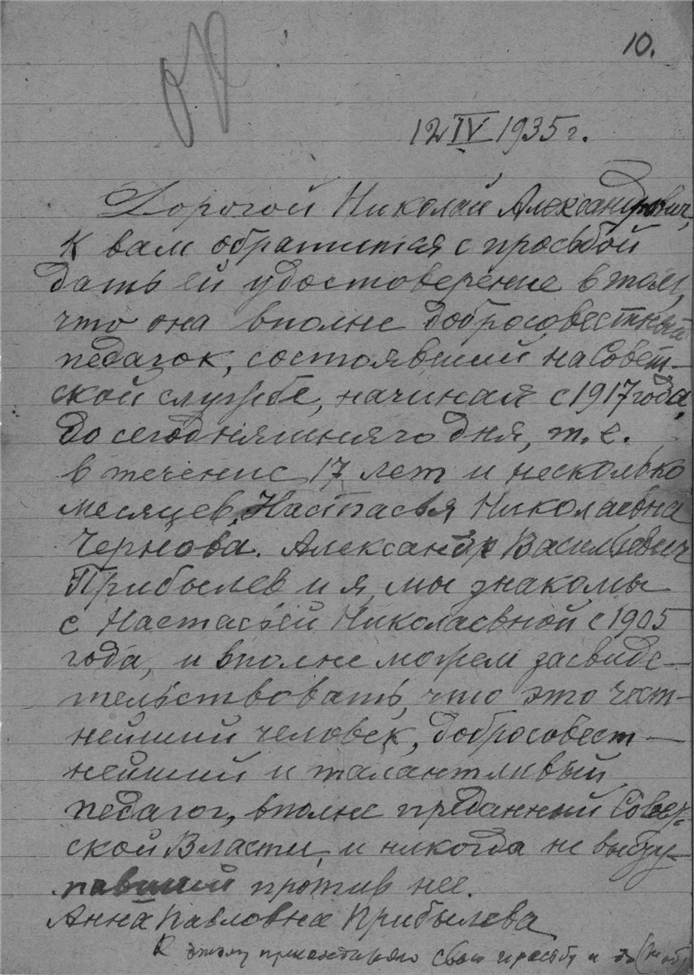 10.
12 IV 1935 г.
Дорогой Николай Александрович,
К вам обратится с просьбой
дать ей удостоверение в том,
что она вполне добросовестный
педагок, состоявший на Совет-
ской службе, начиная с 1917 года,
до сегодняшняго дня, т. е.
в течение 17 лет и несколько
месяцев, Настасья Николаевна
Чернова. Александр Васильевич
Прибылев и я, мы знакомы
с Настасьей Николаевной с 1905
года, и вполне можем засвиде-
тельствовать, что это чест-
нейший человек, добросовест-
нейший и талантливый
педагог, вполне преданный Совет-
ской Власти, и никогда не высту-
павший против нее.
Анна Павловна Прибылева
К этому свою просьбу и